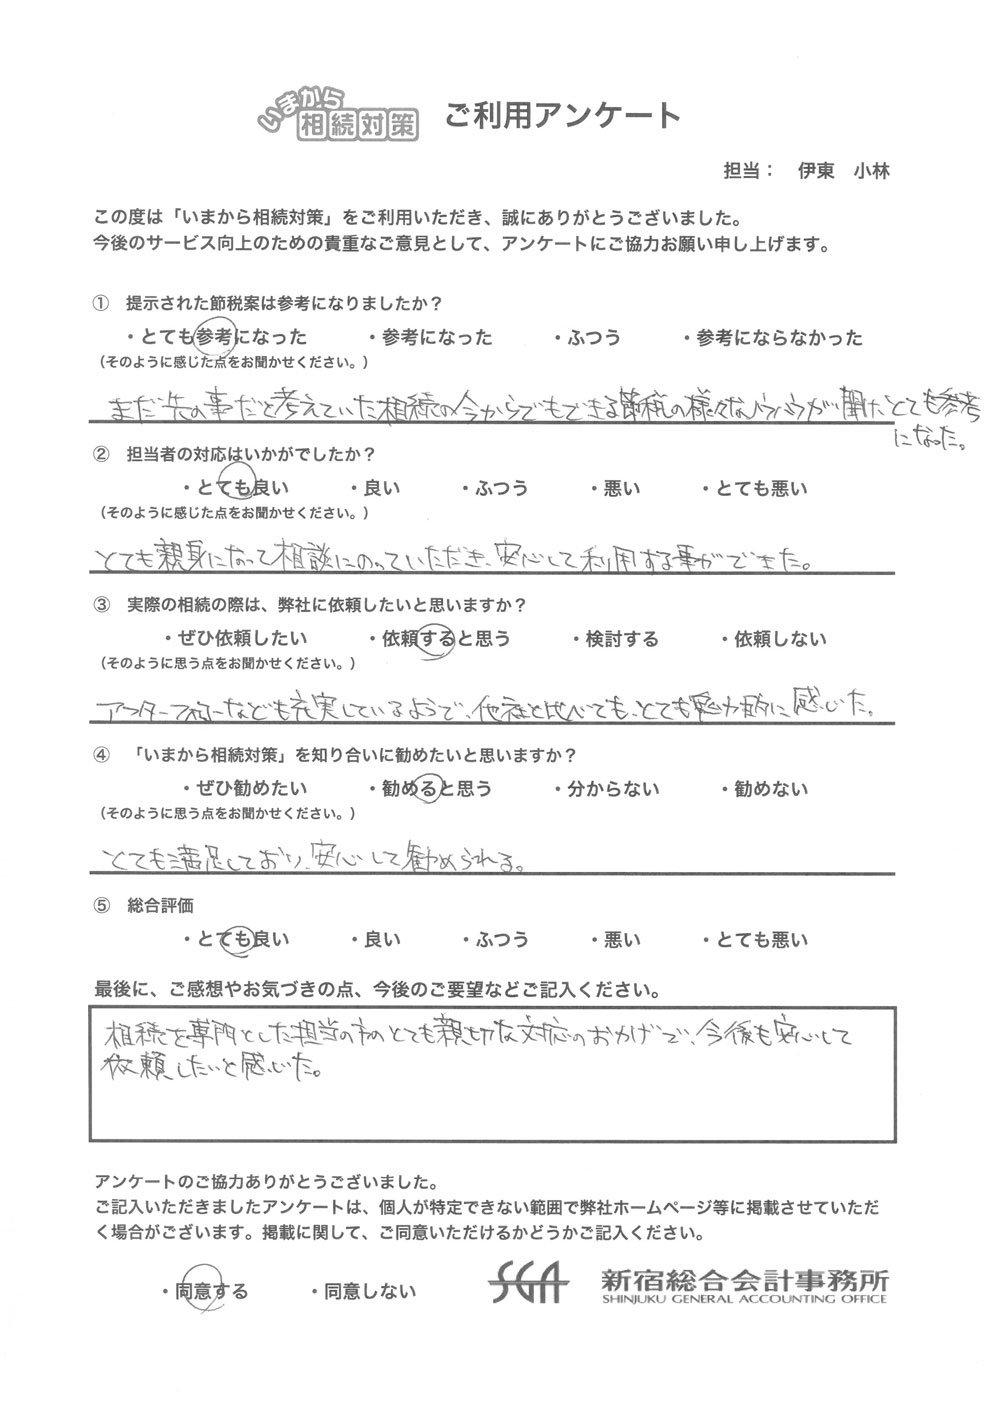 いまから相続対策 ご利用アンケート
担当： 伊東 小林
この度は「いまから相続対策」をご利用いただき、誠にありがとうございました。
今後のサービス向上のための貴重なご意見として、アンケートにご協力お願い申し上げます。
① 提示された節税案は参考になりましたか？
・とても参考になった ・参考になった ・ふつう ・参考にならなかった
（そのように感じた点をお聞かせください。）
まだ先の事だと考えていた相続の今からでもできる節税の様々なノウハウが聞けとても参考
になった。
② 担当者の対応はいかがでしたか？
・とても良い ・良い ・ふつう ・悪い ・とても悪い
（そのように感じた点をお聞かせください。）
とても親身になって相談にのっていただき、安心して利用する事ができた。
③ 実際の相続の際は、弊社に依頼したいと思いますか？
・ぜひ依頼したい ・依頼すると思う ・検討する ・依頼しない
（そのように思う点をお聞かせください。）
アフターフォローなども充実しているようで、他社と比べても、とても魅力的に感じた。
④ 「いまから相続対策」を知り合いに勧めたいと思いますか？
・ぜひ勧めたい ・勧めると思う ・分からない ・勧めない
（そのように思う点をお聞かせください。）
とても満足しており、安心して勧められる。
⑤ 総合評価
・とても良い ・良い ・ふつう ・悪い ・とても悪い
最後に、ご感想やお気づきの点、今後のご要望などご記入ください。
相続を専門とした担当の方のとても親切な対応のおかげで、今後も安心して
依頼したいと感じた。
アンケートのご協力ありがとうございました。
ご記入いただきましたアンケートは、個人が特定できない範囲で弊社ホームページ等に掲載させていただ
く場合がございます。掲載に関して、ご同意いただけるかどうかご記入ください。
・同意する ・同意しない SGA 新宿総合会計事務所
SHINJUKU GENERAL ACCOUNTING OFFICE